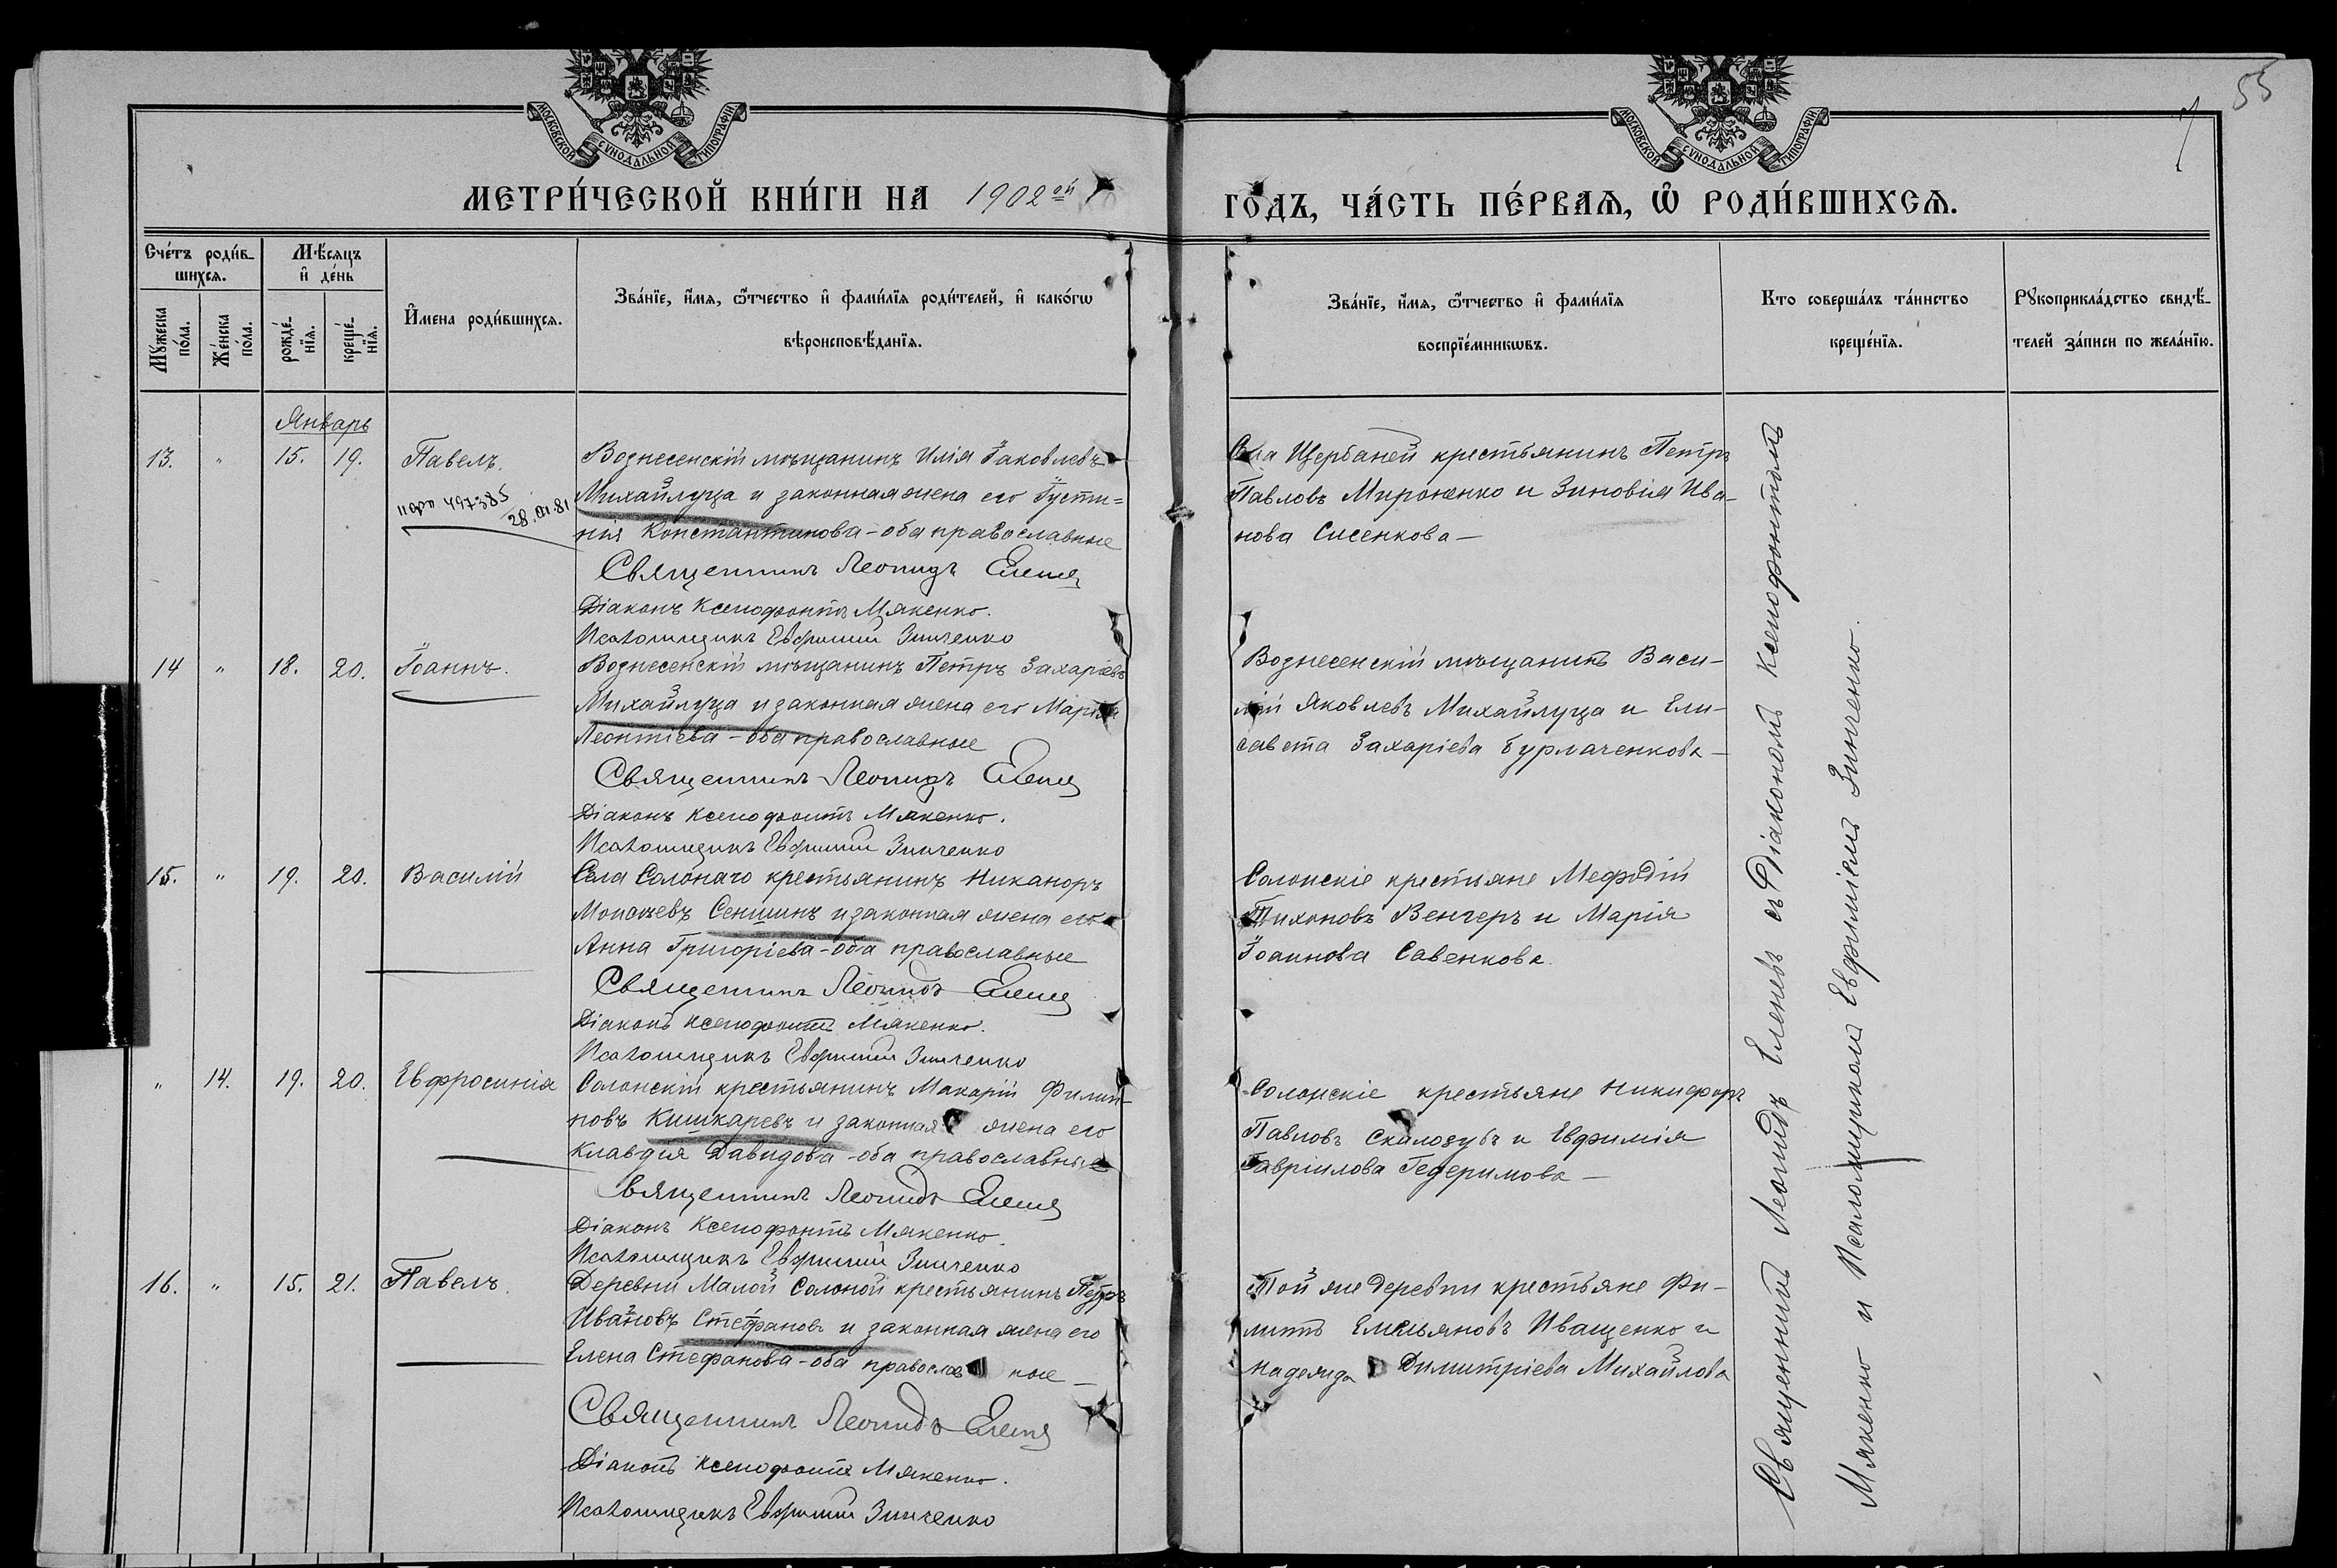 55
7
МОСКОВСКОЙ СУНОДАЛЬНОЙ ТИПОГРАФІИ
МОСКОВСКОЙ СУНОДАЛЬНОЙ ТИПОГРАФІИ
МЕТРИ́ЧЕСКОЙ КНИ́ГИ НА 1902ой
ГОДЪ, ЧА́СТЬ ПЕ́РВАѦ, Ѡ РОДИ́ВШИХСѦ.
Сче́тъ роди́в-
шихсѧ.
Мꙋжеска
по́ла.
Же́нска
по́ла.
Мѣ́сяцъ
и҆ де́нь
рожде́-
нїѧ.
креще́-
нїѧ.
И҆мена роди́вшихсѧ.
Зва́нїе, и҆́мѧ, ѻ҆́тчество и҆ фами́лїѧ роди́телей, и҆ како́гѡ
вѣроисповѣ́данїѧ.
Зва́нїе, и҆́мѧ, ѻ҆́тчество и҆ фами́лїѧ
воспрїе́мникѡвъ.
Кто соверша́лъ та́инство
креще́нїѧ.
Рꙋкоприкла́дство свидѣ́-
телей за́писи по жела́нїю.
Январь
13. " 15. 19. Павелъ.
497385
28.01.81
Вознесенскій мѣщанинъ Илія Іаковлевъ
Михайлуца и законная жена его Іусти=
нія Константинова - оба православные
Священникъ Леонидъ Еленевъ
Діаконъ Ксенофонтъ Мякенко.
Псаломщикъ Евфимій Зинченко
Села Щербаней крестьянинъ Петръ
Павловъ Мироненко и Зиновія Ива-
нова Сисенкова —
14 " 18. 20. Іоаннъ.
Вознесенскій мѣщанинъ Петръ Захаріевъ
Михайлуца и законная жена его Марія
Леонтіева - оба православные
Священникъ Леонидъ Еленевъ
Діаконъ Ксенофонтъ Мякенко.
Псаломщикъ Евфимій Зинченко
Вознесенскій мѣщанинъ Васи-
лій Яковлевъ Михайлуца и Ели-
савета Захаріева Бурлаченкова —
15. " 19. 20. Василій
Села Солонаго крестьянинъ Никаноръ
Сеншинъ и законная жена его
Анна Григоріева - оба православные
Священникъ Леонидъ Еленевъ
Діаконъ Ксенофонтъ Мякенко.
Псаломщикъ Евфимій Зинченко
Солонскіе крестьяне Мефодій
Тихоновъ Венгеръ и Марія
Іоаннова Савенкова.
" 14. 19. 20. Евфросинія
Солонскій крестьянинъ Макарій Филип-
повъ Кишкаревъ и законная жена его
Клавдія Давидова - оба православные
Священникъ Леонидъ Еленевъ
Діаконъ Ксенофонтъ Мякенко.
Псаломщикъ Евфимій Зинченко
Солонскіе крестьяне Никифоръ
Павловъ Скалозубъ и Евфимія
Гавріилова Гедеримова —
16. " 15. 21. Павелъ.
Деревни Малой Солоной крестьянинъ Петръ
Ивановъ Стефановъ и законная жена его
Елена Стефанова - оба православные —
Священникъ Леонидъ Еленевъ
Діаконъ Ксенофонтъ Мякенко.
Псаломщикъ Евфимій Зинченко
Той же деревни крестьяне Фи-
липпъ Емельяновъ Иващенко и
Надежда Димитріева Михайлова
Священникъ Леонидъ Еленевъ съ Діакономъ Ксенофонтомъ
Мякенко и Псаломщикомъ Евфиміемъ Зинченко.